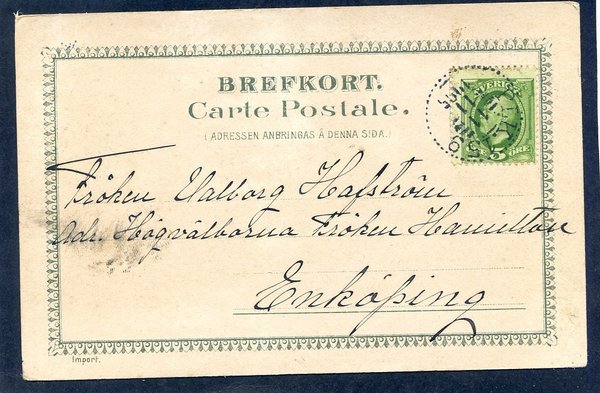 BREFKORT.
Carte Postale.
(ADRESSEN ANBRINGAS Å DENNA SIDA.)
SVERIGE
5 ÖRE
Fröken Valborg Hafström
Adr. Högvälborna Fröken Hamilton
Enköping
Import.